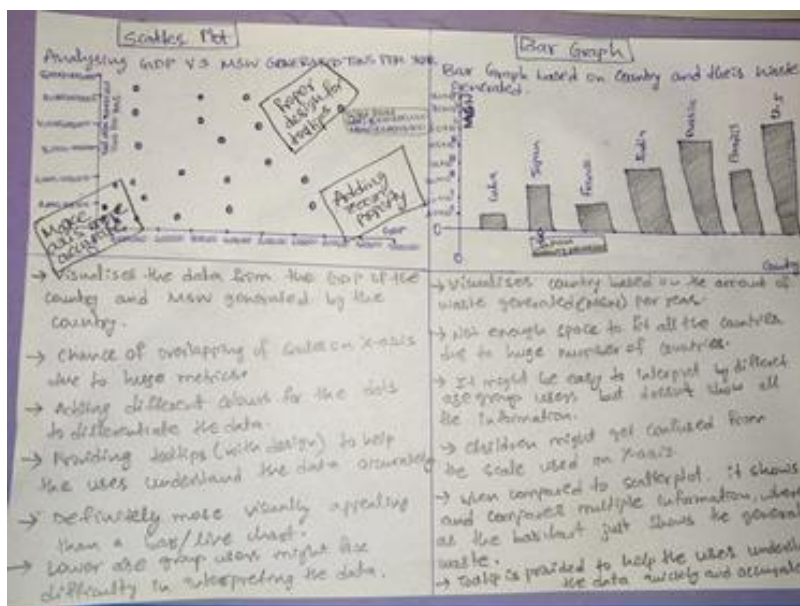 Scatter Plot
Analysing GDP VS MSW GENERATED TONS PER YEAR
Proper
design for
tooltips
Adding
property
Make
axis more
accurate
GDP
→ Visualises the data from the GDP of the
country and MSW generated by the
country.
→ Chance of overlapping of scales on X-axis
due to huge metrics.
→ Adding different colours for the dots
to differentiate the data.
→ Providing tooltips (with design) to help
the users understand the data accurately
→ Definitely more visually appealing
than a bar/line chart.
→ Lower age group users might face
difficulty in interpreting the data.
Bar Graph
Bar Graph based on country and their waste
generated.
MSW
Cuba
Japan
France
India
Russia
Brazil
U.S
0
Country
→ Visualises country based on the amount of
waste generated (MSW) per year.
→ Not enough space to fit all the countries
due to huge number of countries.
→ It might be easy to interpret by different
age group users but doesn't show all
the information.
→ Children might get confused from
the scale used on X-axis.
→ When compared to scatterplot, it shows
and compares multiple information, where
as the barchart just shows the general
waste.
→ Tooltip is provided to help the users underst
the data quickly and accurate